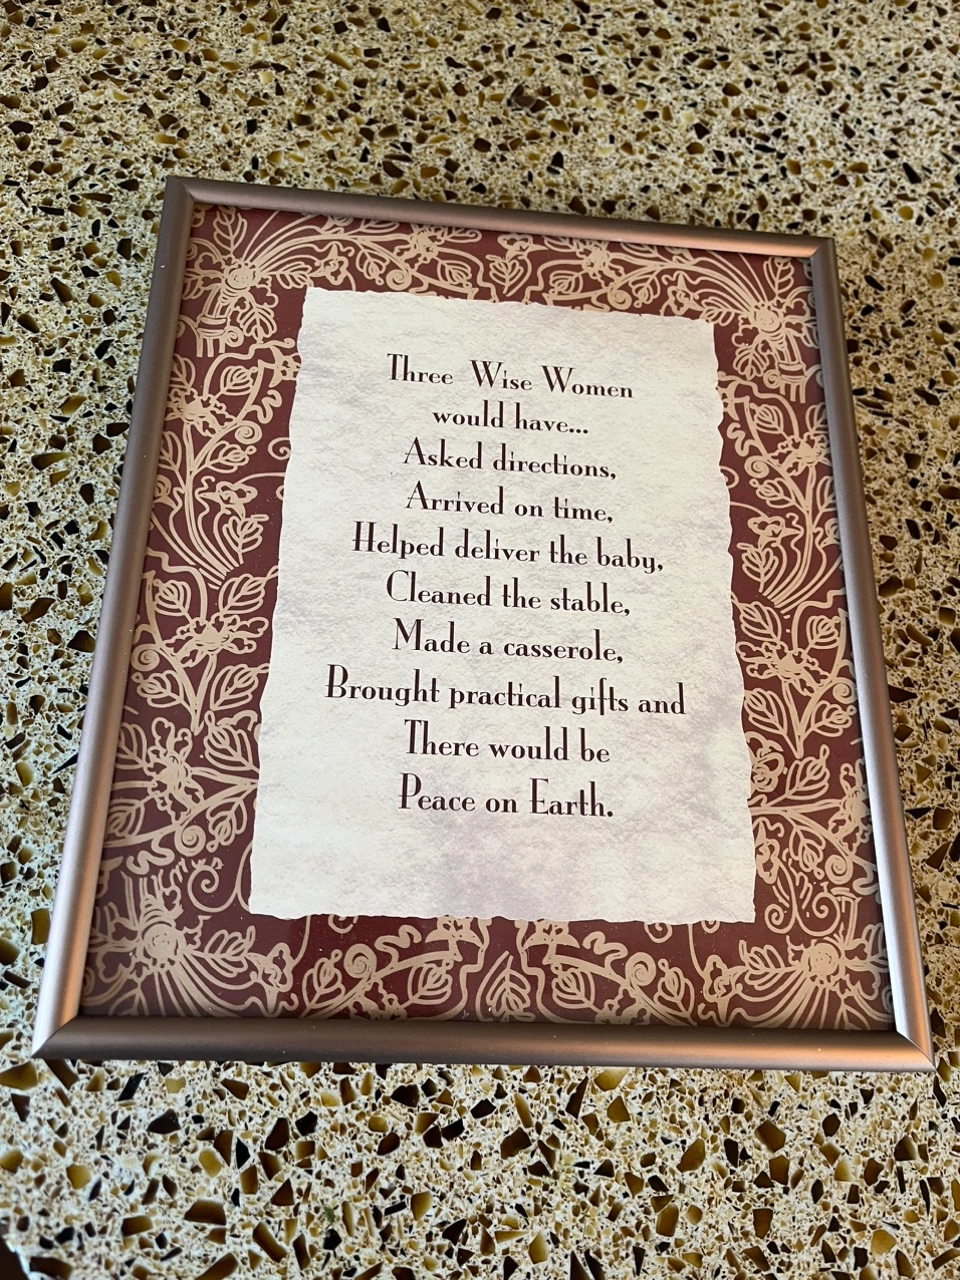 Three Wise Women
would have...
Asked directions,
Arrived on time,
Helped deliver the baby,
Cleaned the stable,
Made a casserole,
Brought practical gifts and
There would be
Peace on Earth.